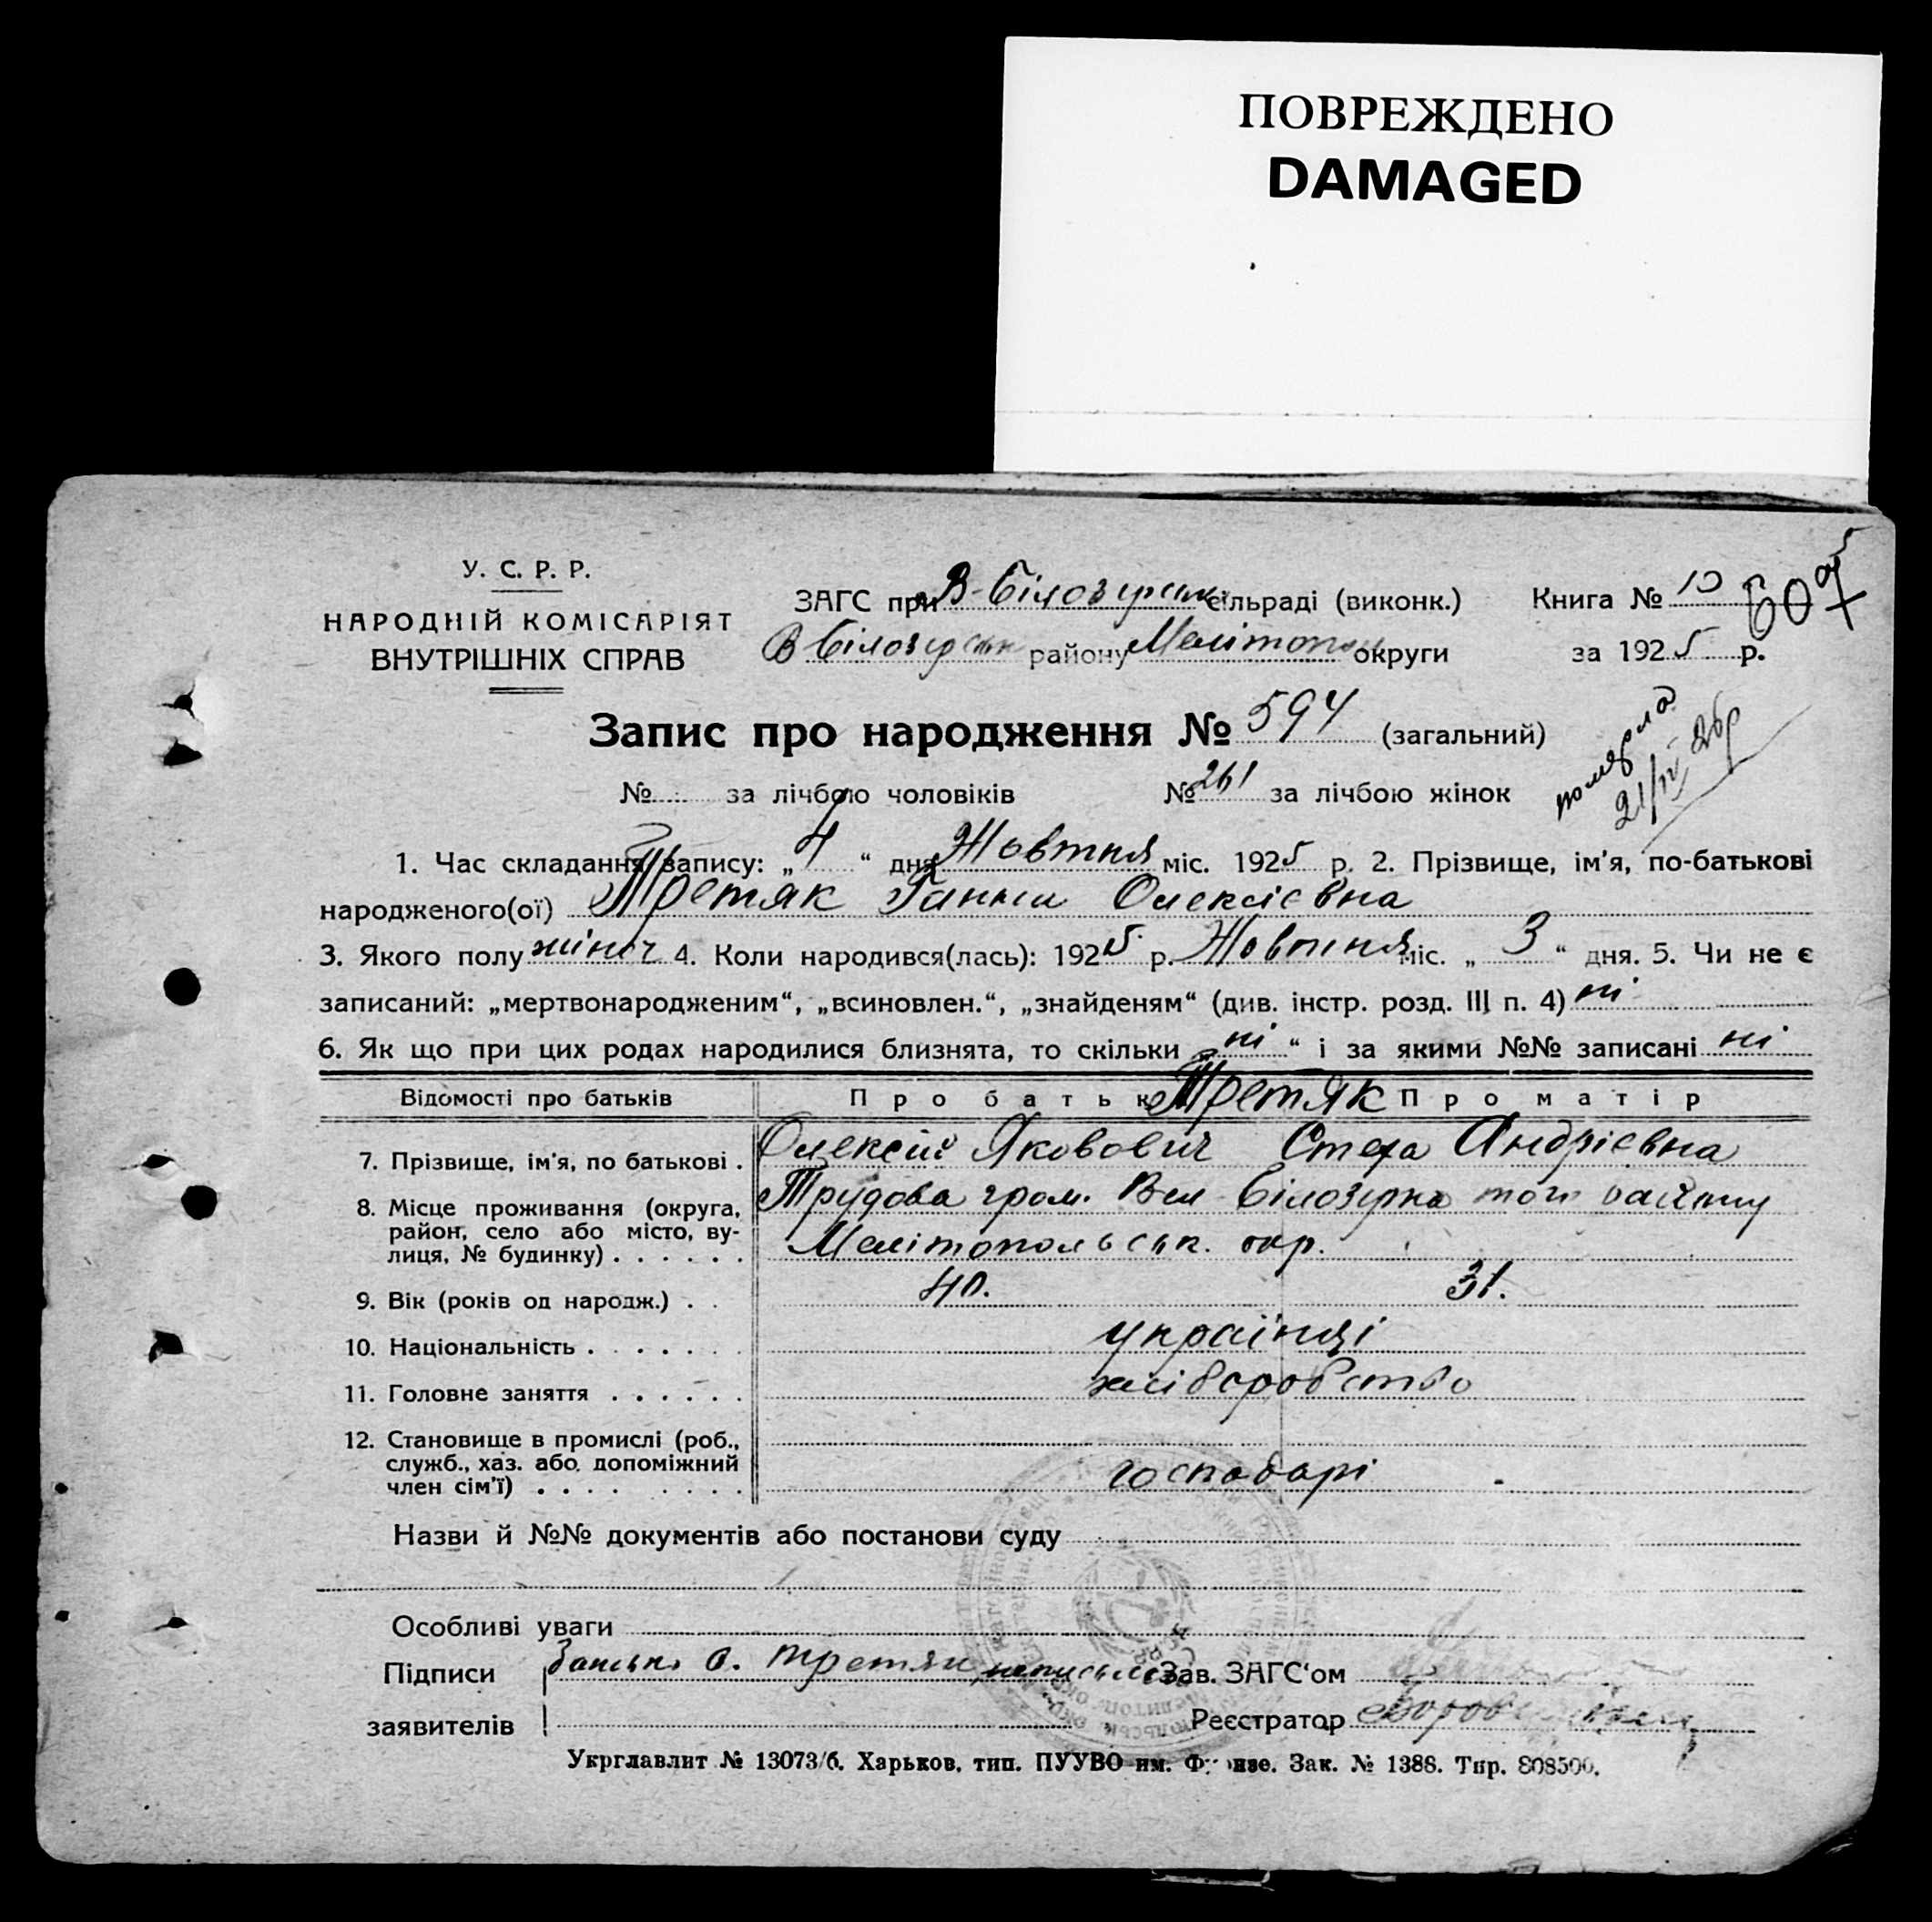 ПОВРЕЖДЕНО
DAMAGED
У. С. Р. Р.
НАРОДНІЙ КОМІСАРІЯТ
ВНУТРІШНІХ СПРАВ
ЗАГС при В-Білозерськ сільраді (виконк.) Книга № 10
В Білозерськ району Мелітополь округи за 1925 р.
Запис про народження № 594 (загальний)
№ за лічбою чоловіків № 261 за лічбою жінок
померла
21/IV 26р
1. Час складання запису: „ 7 “ дня Жовтня міс. 1925 р. 2. Прізвище, ім'я, по-батькові
народженого(ої) Третяк Ганна Олексієвна
3. Якого полу жіноч 4. Коли народився(лась): 1925 р. Жовтня міс. „ 3 “ дня. 5. Чи не є
записаний: „мертвонародженим“, „всиновлен.“, „знайденям“ (див. інстр. розд. III п. 4) ні
6. Як що при цих родах народилися близнята, то скільки „ ні “ і за якими №№ записані ні
Відомості про батьків Про батька Третяк Про матір
7. Прізвище, ім'я, по батькові . Олексій Якович Стеха Андрієвна
8. Місце проживання (округа, Трудова гром. Вел Білозірка того району
район, село або місто, ву-
лиця, № будинку) . . . . . . Мелітопольськ. окр.
9. Вік (років од народж.) . . 40. 31.
10. Національність . . . . . . . українці
11. Головне заняття . . . . . . хліборобство
12. Становище в промислі (роб.,
служб., хаз. або допоміжний
член сім'ї) . . . . . . . . . господарі
Назви й №№ документів або постанови суду
Особливі уваги
Підписи батько О. Третяк неписьмен Зав. ЗАГС'ом
заявителів Реєстратор
Укрглавлит № 13073/б. Харьков, тип. ПУУВО им. Фрунзе. Зак. № 1388. Тир. 808500.